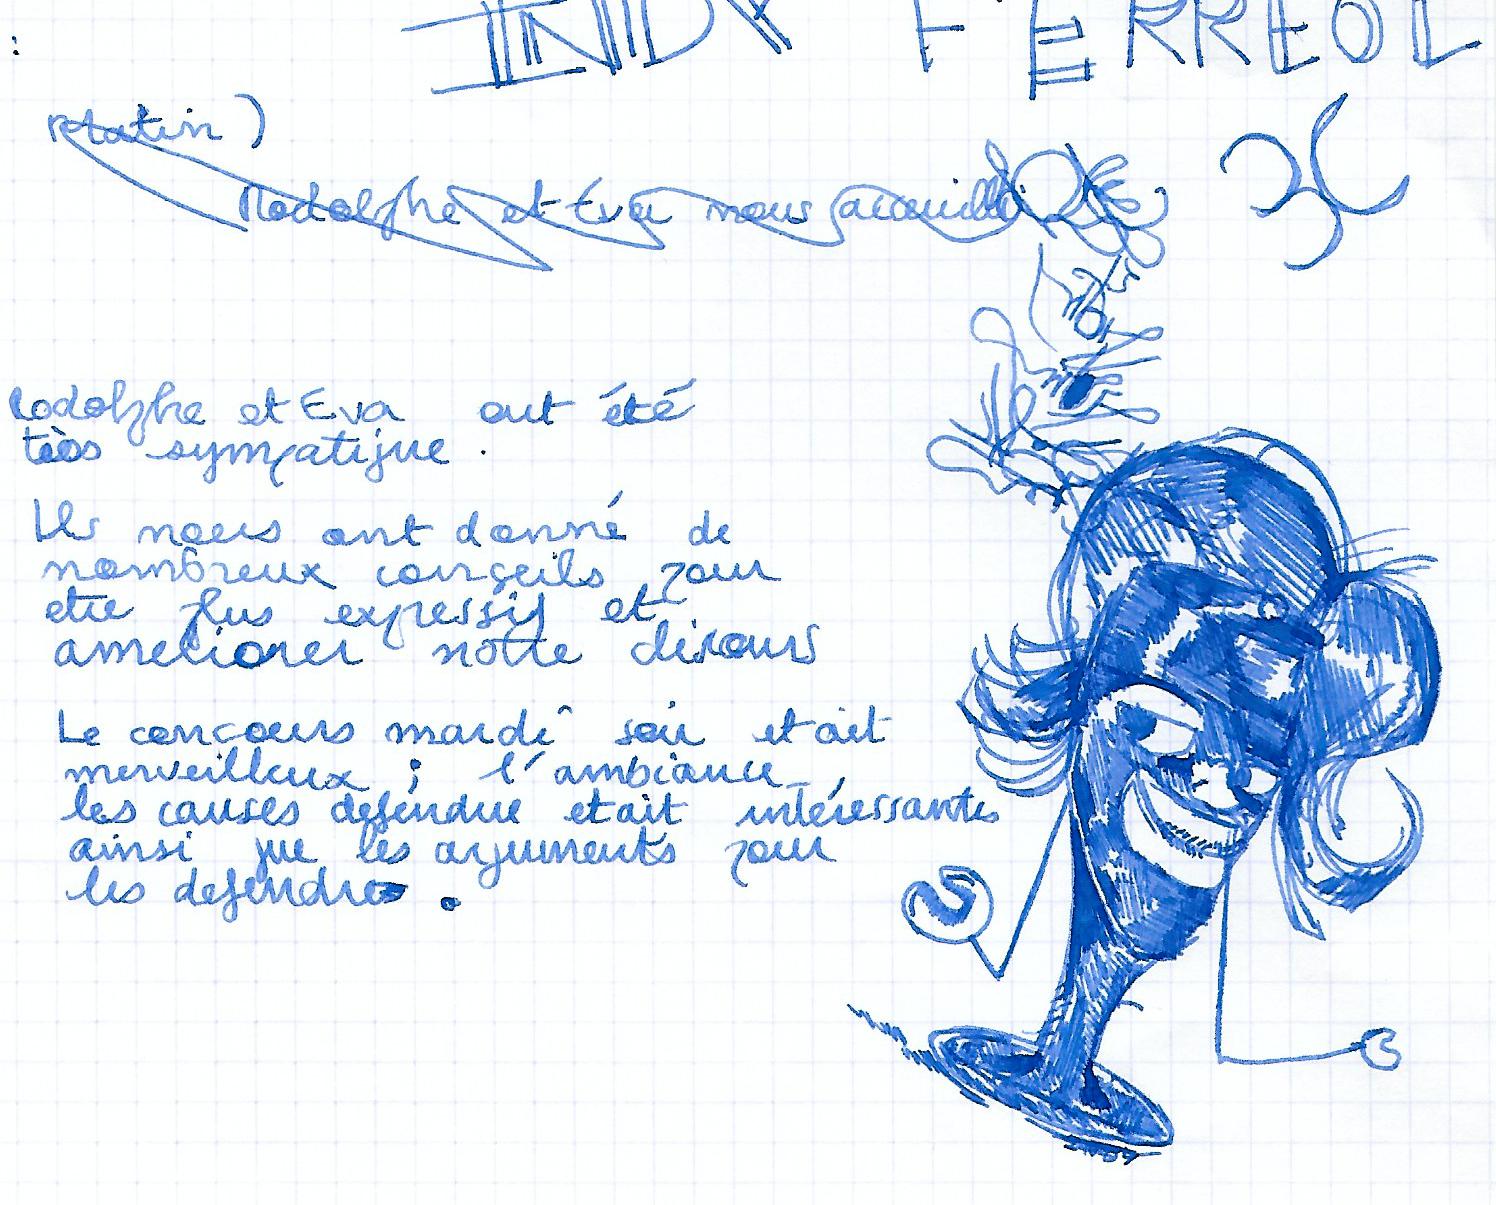 INDY FERREOL
:
Rodolphe et Eva nous
Rodolphe et Eva ont été
très sympatique.
Ils nous ont donné de
nombreux conseils pour
etre plus expressif et
ameliorer notre discours
Le concours mardi soir etait
merveilleux ; l'ambiance,
les causes defendue etait intéressantes
ainsi que les arguments pour
les defendre.